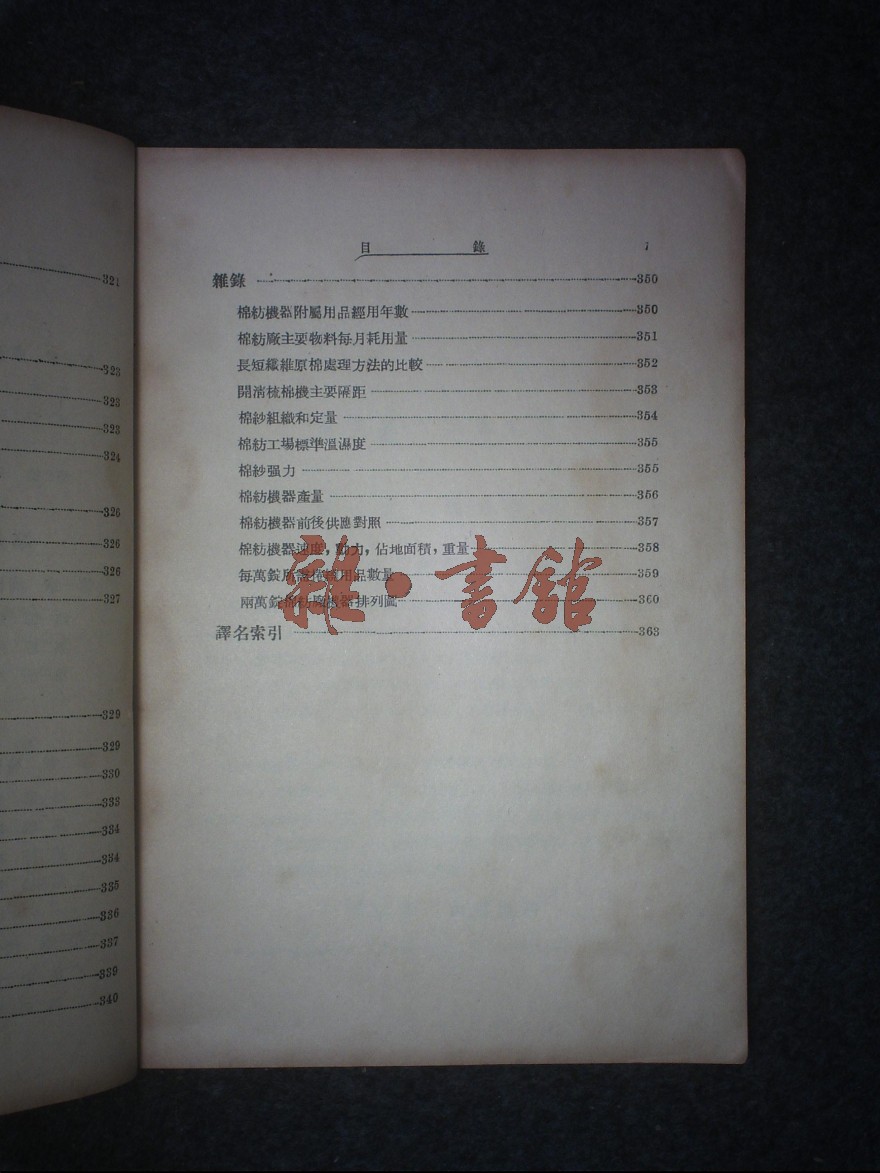 321
323
323
323
324
326
326
326
327
329
329
330
333
334
334
335
336
337
339
340
目 錄
雜錄 350
棉紡機器附屬用品經用年數 350
棉紡廠主要物料每月耗用量 351
長短纖維原棉處理方法的比較 352
開清梳棉機主要隔距 353
棉紗組織和定量 354
棉紡工場標準溫濕度 355
棉紗强力 355
棉紡機器產量 356
棉紡機器前後供應對照 357
棉紡機器速度，動力，佔地面積，重量 358
每萬錠所需機器用品數量 359
兩萬錠棉紡廠機器排列圖 360
雜·書館
譯名索引 363